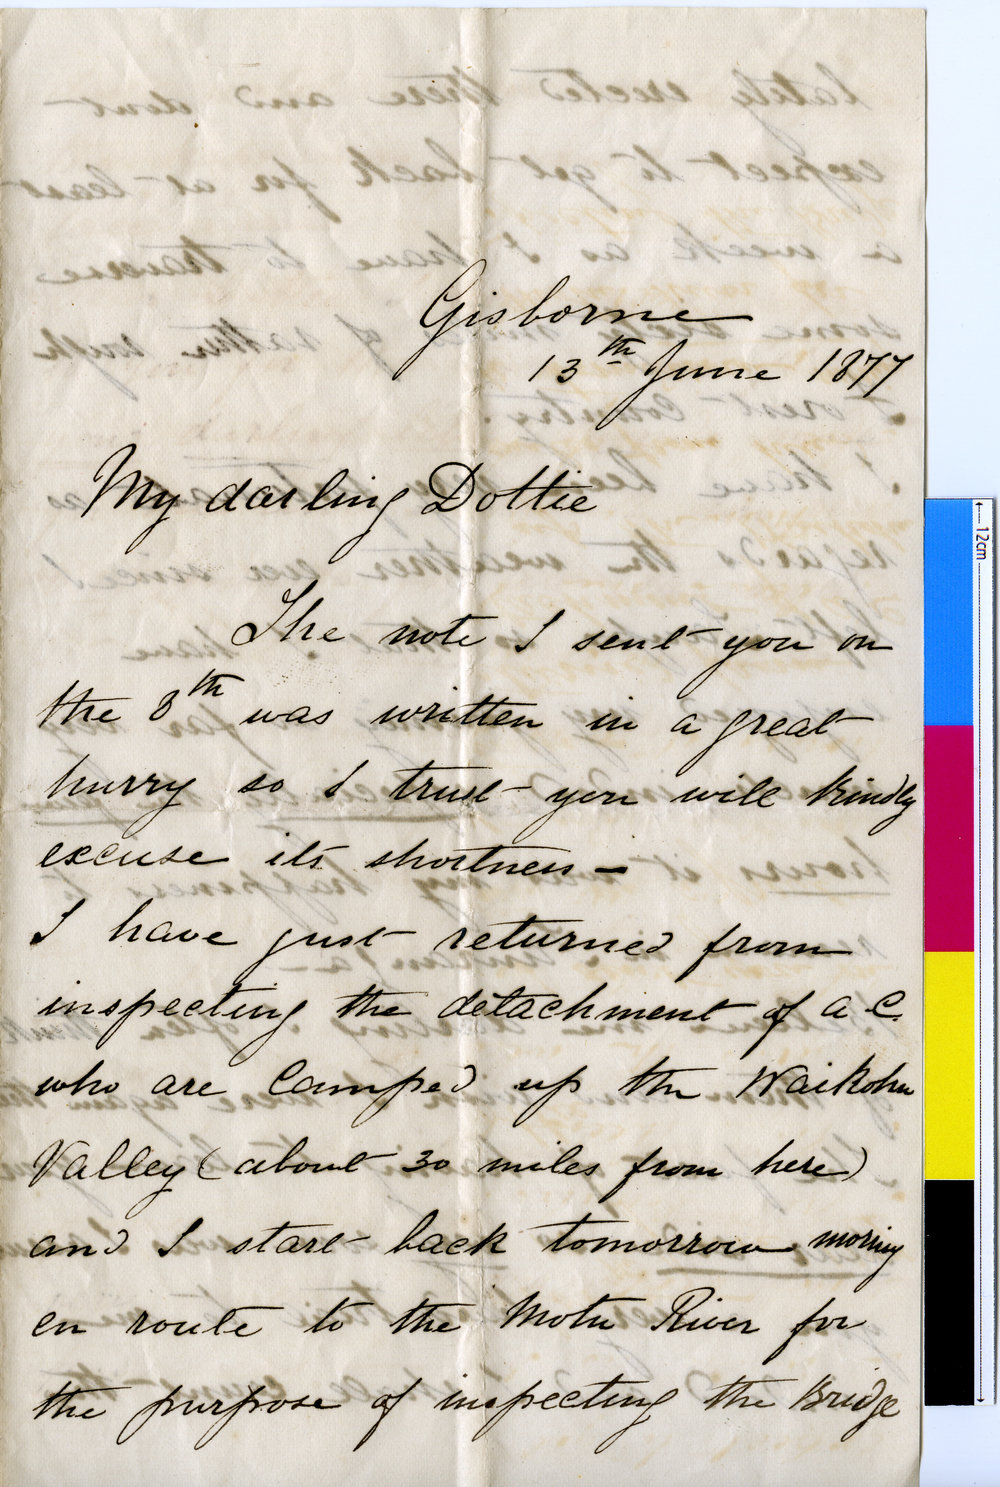 Gisborne
13th June 1877
My darling Dottie
The note I sent you on
the 8th was written in a great
hurry so I trust you will kindly
excuse its shortness –
I have just returned from
inspecting the detachment of A C.
who are camped up the Waikohu
Valley (about 30 miles from here)
and I start back tomorrow morning
en route to the Motu River for
the purpose of inspecting the Bridge
12cm